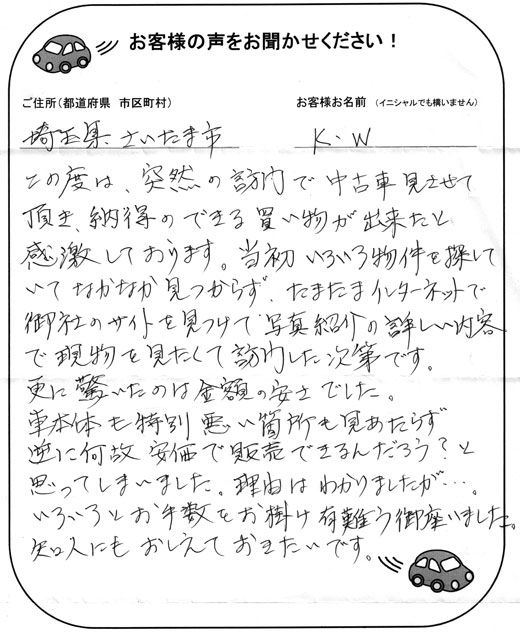 お客様の声をお聞かせください！
ご住所（都道府県 市区町村） お客様お名前 （イニシャルでも構いません）
埼玉県、さいたま市 K.W
この度は、突然の訪問で中古車見させて
頂き、納得のできる買い物が出来たと
感激しております。当初いろいろ物件を探して
いてなかなか見つからず、たまたまインターネットで
御社のサイトを見つけて写真紹介の詳しい内容
で現物を見たくて訪問した次第です。
更に驚いたのは金額の安さでした。
車本体も特別悪い箇所も見あたらず
逆に何故安価で販売できるんだろう？と
思ってしまいました。理由はわかりましたが…。
いろいろとお手数をお掛け有難う御座いました。
知人にもおしえておきたいです。